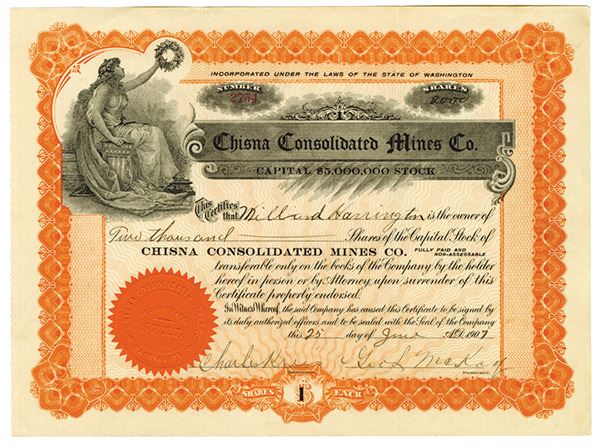 INCORPORATED UNDER THE LAWS OF THE STATE OF WASHINGTON
NUMBER
SHARES
2000
Chisna Consolidated Mines Co.
CAPITAL $5,000,000 STOCK
This Certifies that Millard Harrington is the owner of
Two thousand Shares of the Capital Stock of
CHISNA CONSOLIDATED MINES CO. FULLY PAID AND NON-ASSESSABLE
transferable only on the books of the Company by the holder
hereof in person or by Attorney, upon surrender of this
Certificate properly endorsed.
In Witness Whereof, the said Company has caused this Certificate to be signed by
its duly authorized officers and to be sealed with the Seal of the Company
this 25 day of June A.D. 1907
Charles Geo.
PRESIDENT.
SHARES $1 EACH